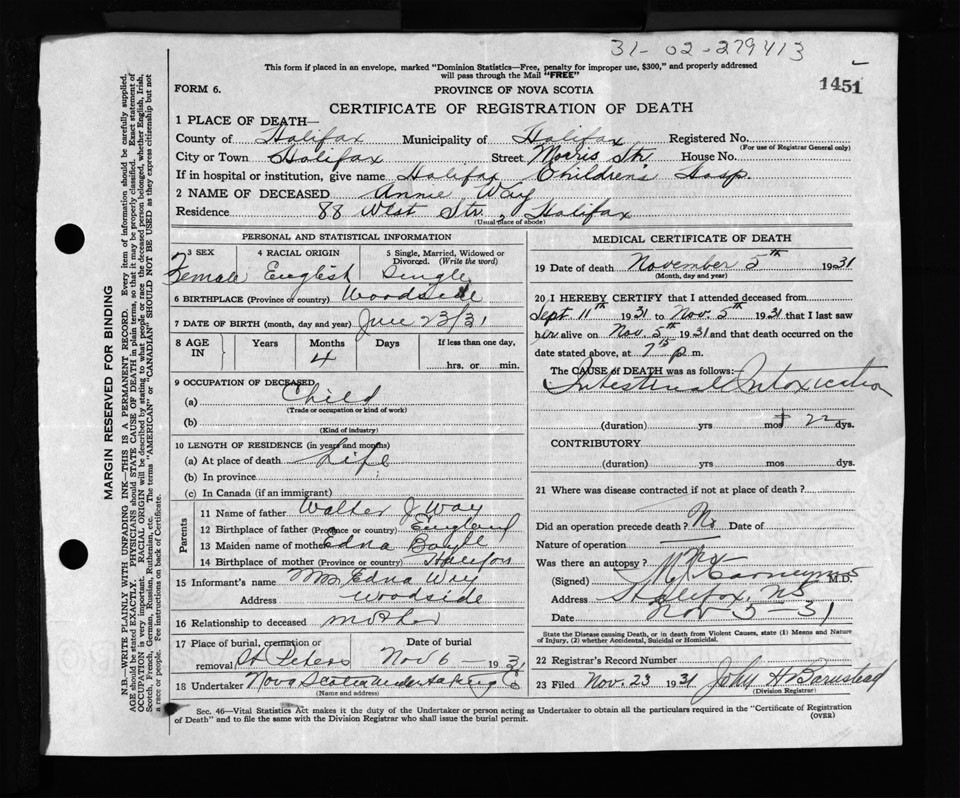 31-02-279413
This form if placed in an envelope, marked "Dominion Statistics—Free, penalty for improper use, $300," and properly addressed
will pass through the Mail "FREE"
1451
FORM 6.
PROVINCE OF NOVA SCOTIA
CERTIFICATE OF REGISTRATION OF DEATH
1 PLACE OF DEATH—
County of Halifax Municipality of Halifax Registered No.
(For use of Registrar General only)
City or Town Halifax Street Morris Str. House No.
If in hospital or institution, give name Halifax Childrens Hosp.
2 NAME OF DECEASED Annie Way
Residence 88 West Str., Halifax
(Usual place of abode)
PERSONAL AND STATISTICAL INFORMATION
3 SEX 4 RACIAL ORIGIN 5 Single, Married, Widowed or
Divorced. (Write the word)
Female English Single
6 BIRTHPLACE (Province or country) Woodside
7 DATE OF BIRTH (month, day and year) June 23/31
8 AGE IN Years Months Days If less than one day,
4 hrs. or min.
9 OCCUPATION OF DECEASED
(a) Child
(Trade or occupation or kind of work)
(b)
(Kind of industry)
10 LENGTH OF RESIDENCE (in years and months)
(a) At place of death Life
(b) In province
(c) In Canada (if an immigrant)
Parents
11 Name of father Walter J. Way
12 Birthplace of father (Province or country) England
13 Maiden name of mother Edna Boyle
14 Birthplace of mother (Province or country) Halifax
15 Informant's name Mrs Edna Way
Address Woodside
16 Relationship to deceased mother
17 Place of burial, cremation or Date of burial
removal St Peters Nov 6 — 1931
18 Undertaker Nova Scotia Undertaking Co
(Name and address)
MEDICAL CERTIFICATE OF DEATH
19 Date of death November 5th 1931
(Month, day and year)
20 I HEREBY CERTIFY that I attended deceased from
Sept 11th 1931 to Nov. 5th 1931 that I last saw
her alive on Nov. 5th 1931 and that death occurred on the
date stated above, at 7 15 p. m.
The CAUSE OF DEATH was as follows:
Intestinal Intoxication
(duration) yrs mos 22 dys.
CONTRIBUTORY
(duration) yrs mos. dys.
21 Where was disease contracted if not at place of death?
Did an operation precede death? No Date of
Nature of operation
Was there an autopsy? No
(Signed) M.D.
Address Halifax, NS
Date Nov 5-31
State the Disease causing Death, or in death from Violent Causes, state (1) Means and Nature
of Injury, (2) whether Accidental, Suicidal or Homicidal.
22 Registrar's Record Number
23 Filed Nov. 23 1931 John H Barnstead
(Division Registrar)
Sec. 46—Vital Statistics Act makes it the duty of the Undertaker or person acting as Undertaker to obtain all the particulars required in the "Certificate of Registration
of Death" and to file the same with the Division Registrar who shall issue the burial permit.
(OVER)
MARGIN RESERVED FOR BINDING
N.B.—WRITE PLAINLY WITH UNFADING INK—THIS IS A PERMANENT RECORD. Every item of information should be carefully supplied.
AGE should be stated EXACTLY. PHYSICIANS should STATE CAUSE OF DEATH in plain terms, so that it may be properly classified. Exact statement of
OCCUPATION is very important. RACIAL ORIGIN will be described by stating to what people or race the deceased person belonged, whether English, Irish,
Scotch, French, German, Russian, Ruthenian, etc. The terms "AMERICAN" or "CANADIAN" SHOULD NOT BE USED as they express citizenship but not
a race or people. See instructions on back of Certificate.